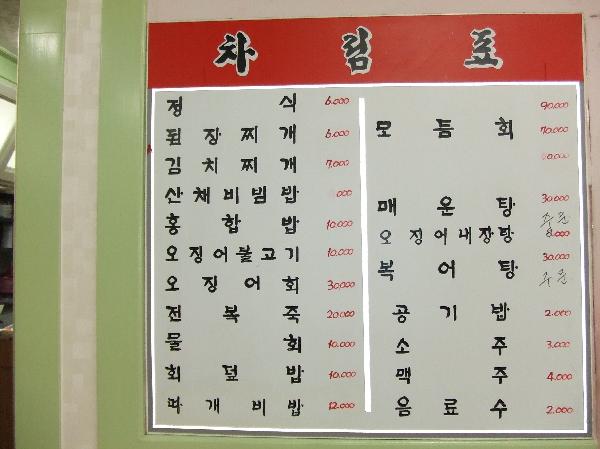 차림표
정식 6,000
된장찌개 6,000
김치찌개 7,000
산채비빔밥 000
홍합밥 10,000
오징어불고기 10,000
오징어회 30,000
전복죽 20,000
물회 10,000
회덮밥 10,000
따개비밥 12,000
90,000
모듬회 70,000
0,000
매운탕 30,000
오징어내장탕 8,000
복어탕 30,000
공기밥 2,000
소주 3,000
맥주 4,000
음료수 2,000